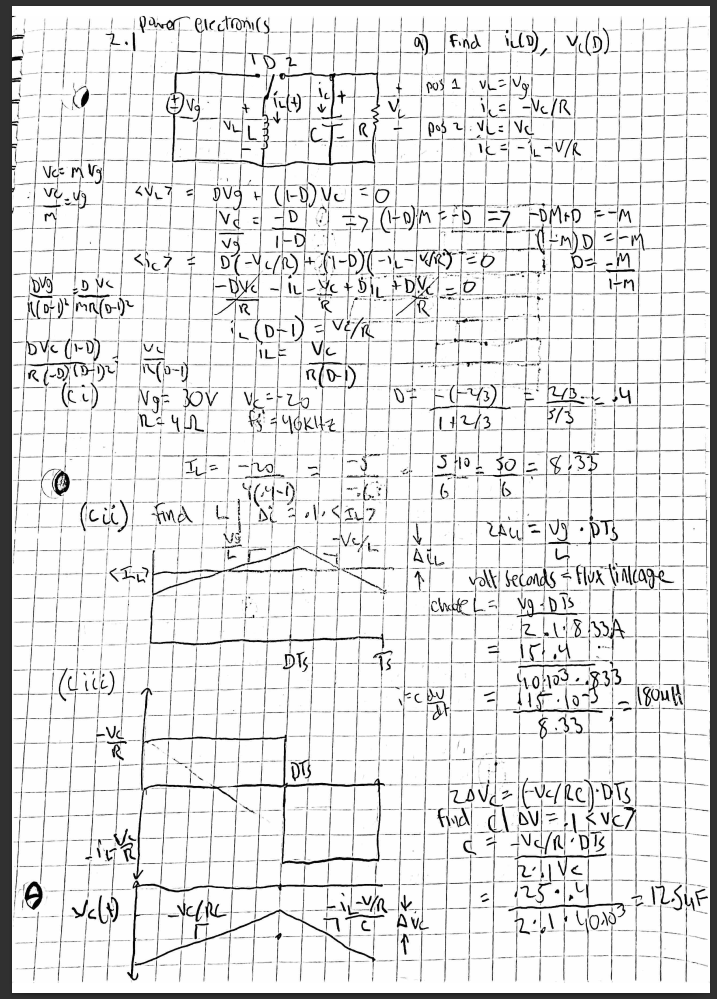 power electronics
2.1
a) Find iL(D), Vc(D)
1 D 2
Vg
+
VL L
-
iL(t)
ic
+
C
-
R
+
Vc
-
pos 1 VL = Vg
ic = -Vc/R
pos 2 VL = Vc
ic = -iL - V/R
Vc = M Vg
Vc/M = Vg
<VL> = DVg + (1-D)Vc = 0
Vc/Vg = -D/(1-D) => (1-D)M = -D => -DM+D = -M
(1-M)D = -M
D = -M/(1-M)
<ic> = D(-Vc/R) + (1-D)(-iL - V/R) = 0
-DVc/R - iL - Vc/R + DiL + DVc/R = 0
iL(D-1) = Vc/R
iL = Vc/R(D-1)
DVg/R(D-1)² = DVc/MR(D-1)²
DVc(1-D)/R(-D)(D-1)² = Vc/R(D-1)
(ci) Vg = 30V Vc = -20
R = 4Ω fs = 40KHz
D = -(-2/3)/(1+2/3) = 2/3/5/3 = .4
IL = -20/4(.4-1) = -5/-.6 = 5·10/6 = 50/6 = 8.33
(cii) Find L | Δi = .1·<IL>
Vg/L
-Vc/L
<IL>
DTs
Ts
↓
ΔiL
↑
2ΔiL = Vg/L · DTs
volt seconds = flux linkage
choose L = Vg·DTs/2·.1·8.33A
= 15·.4/40·10³·.833
= 1.5·10⁻³/8.33 = 180uH
(ciii)
i = c dv/dt
-Vc/R
DTs
-iL-Vc/R
2ΔVc = (-Vc/RC)·DTs
find C | ΔV = .1<Vc>
C = -Vc/R·DTs/2·.1Vc
= .25·.4/2·.1·40·10³ = 12.5uF
Vc(t)
-Vc/RC
-iL-V/R/C
↓
ΔVc
↑